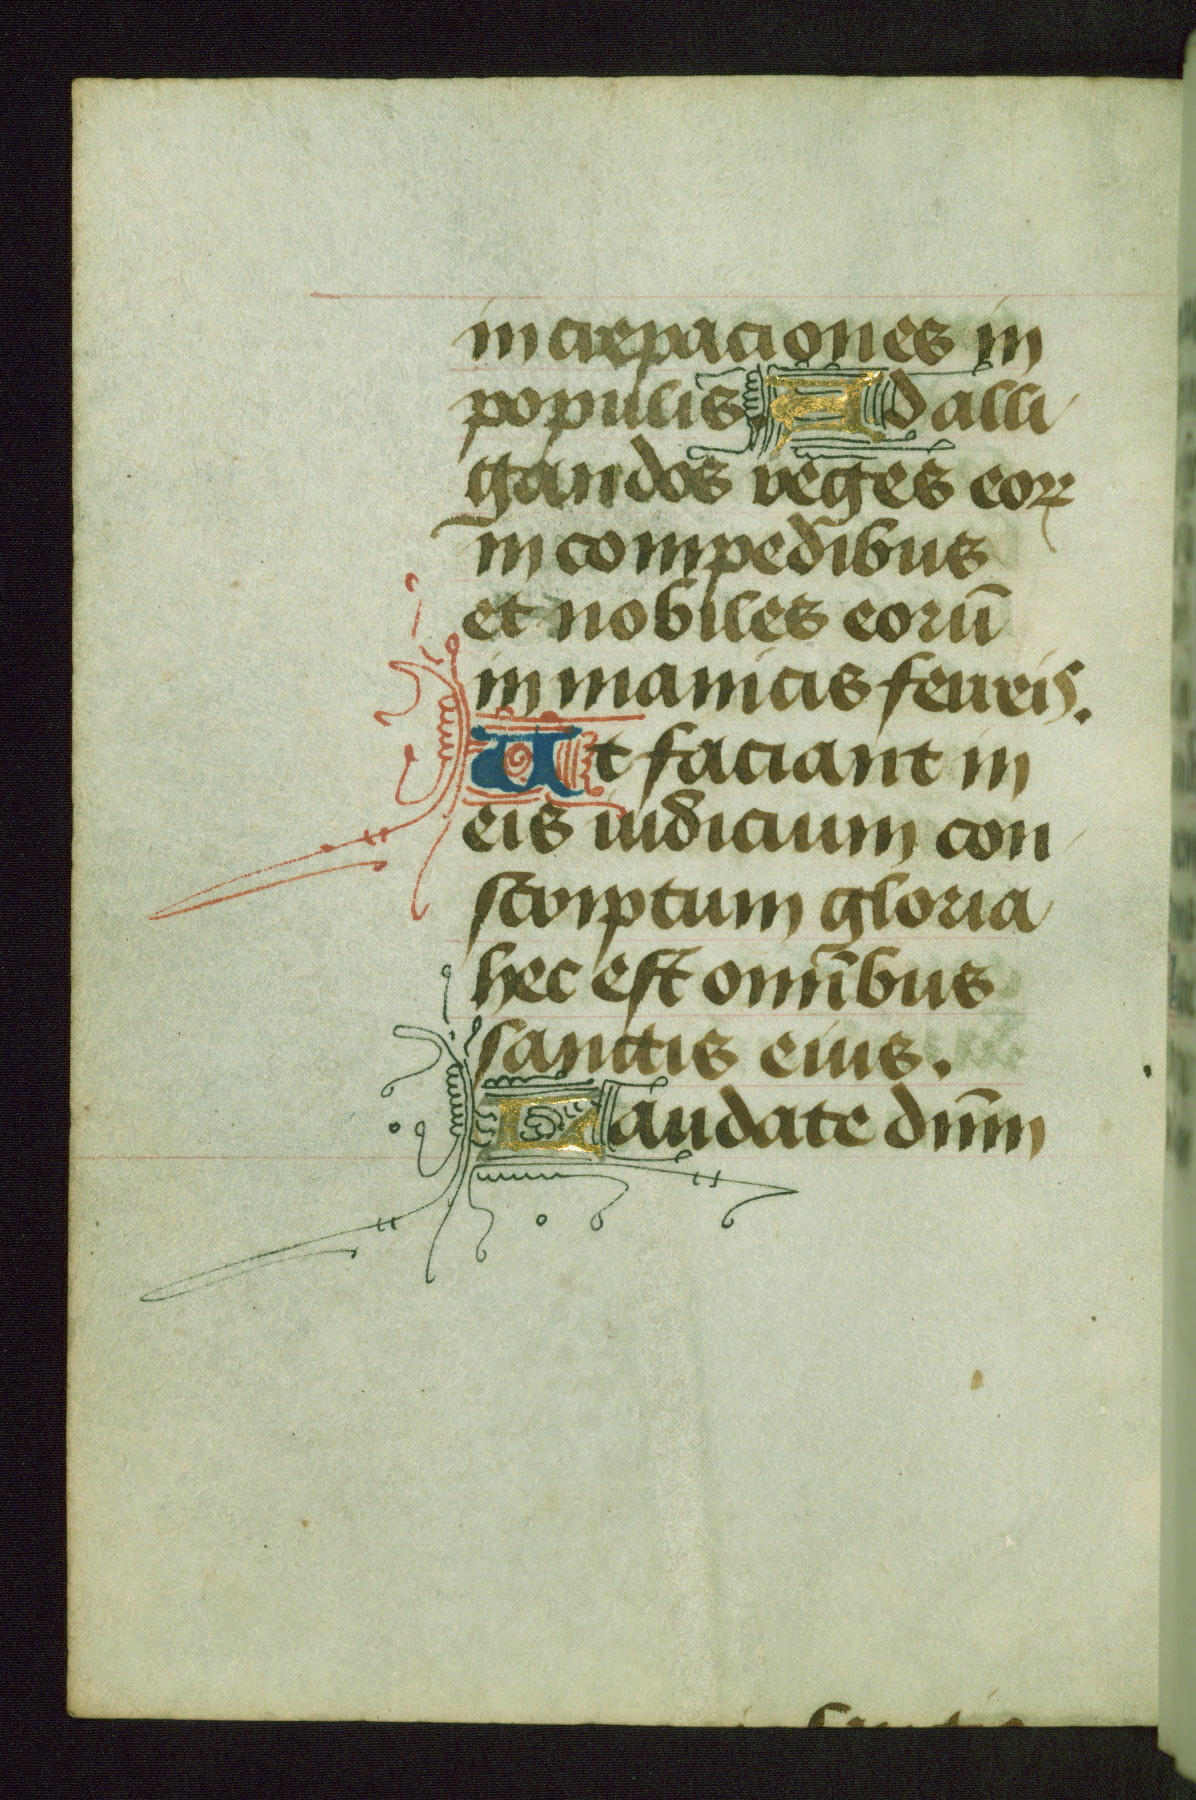 increpaciones in
populis. Ad alli
gandos reges eoꝝ
in compedibus
et nobiles eorū
in manicis ferreis.
Ut faciant in
eis iudicium con
scriptum gloria
hec est omībus
sanctis eius.
Laudate dnm̄